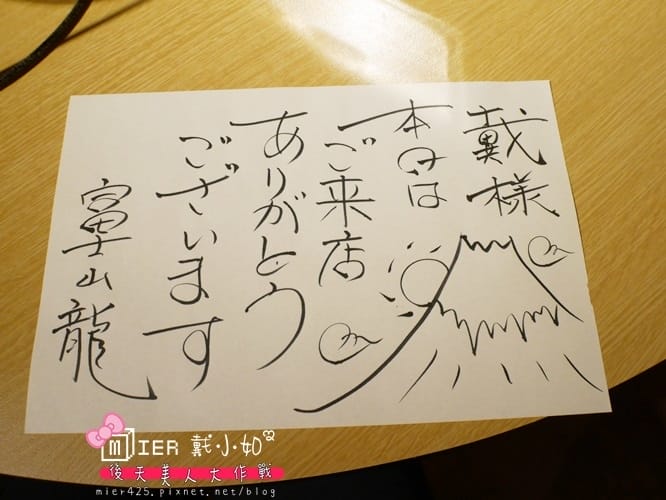 戴様
本日は
ご来店
ありがとう
ございます
富士山龍
MIER 戴小如
後天美人大作戰
mier425.pixnet.net/blog